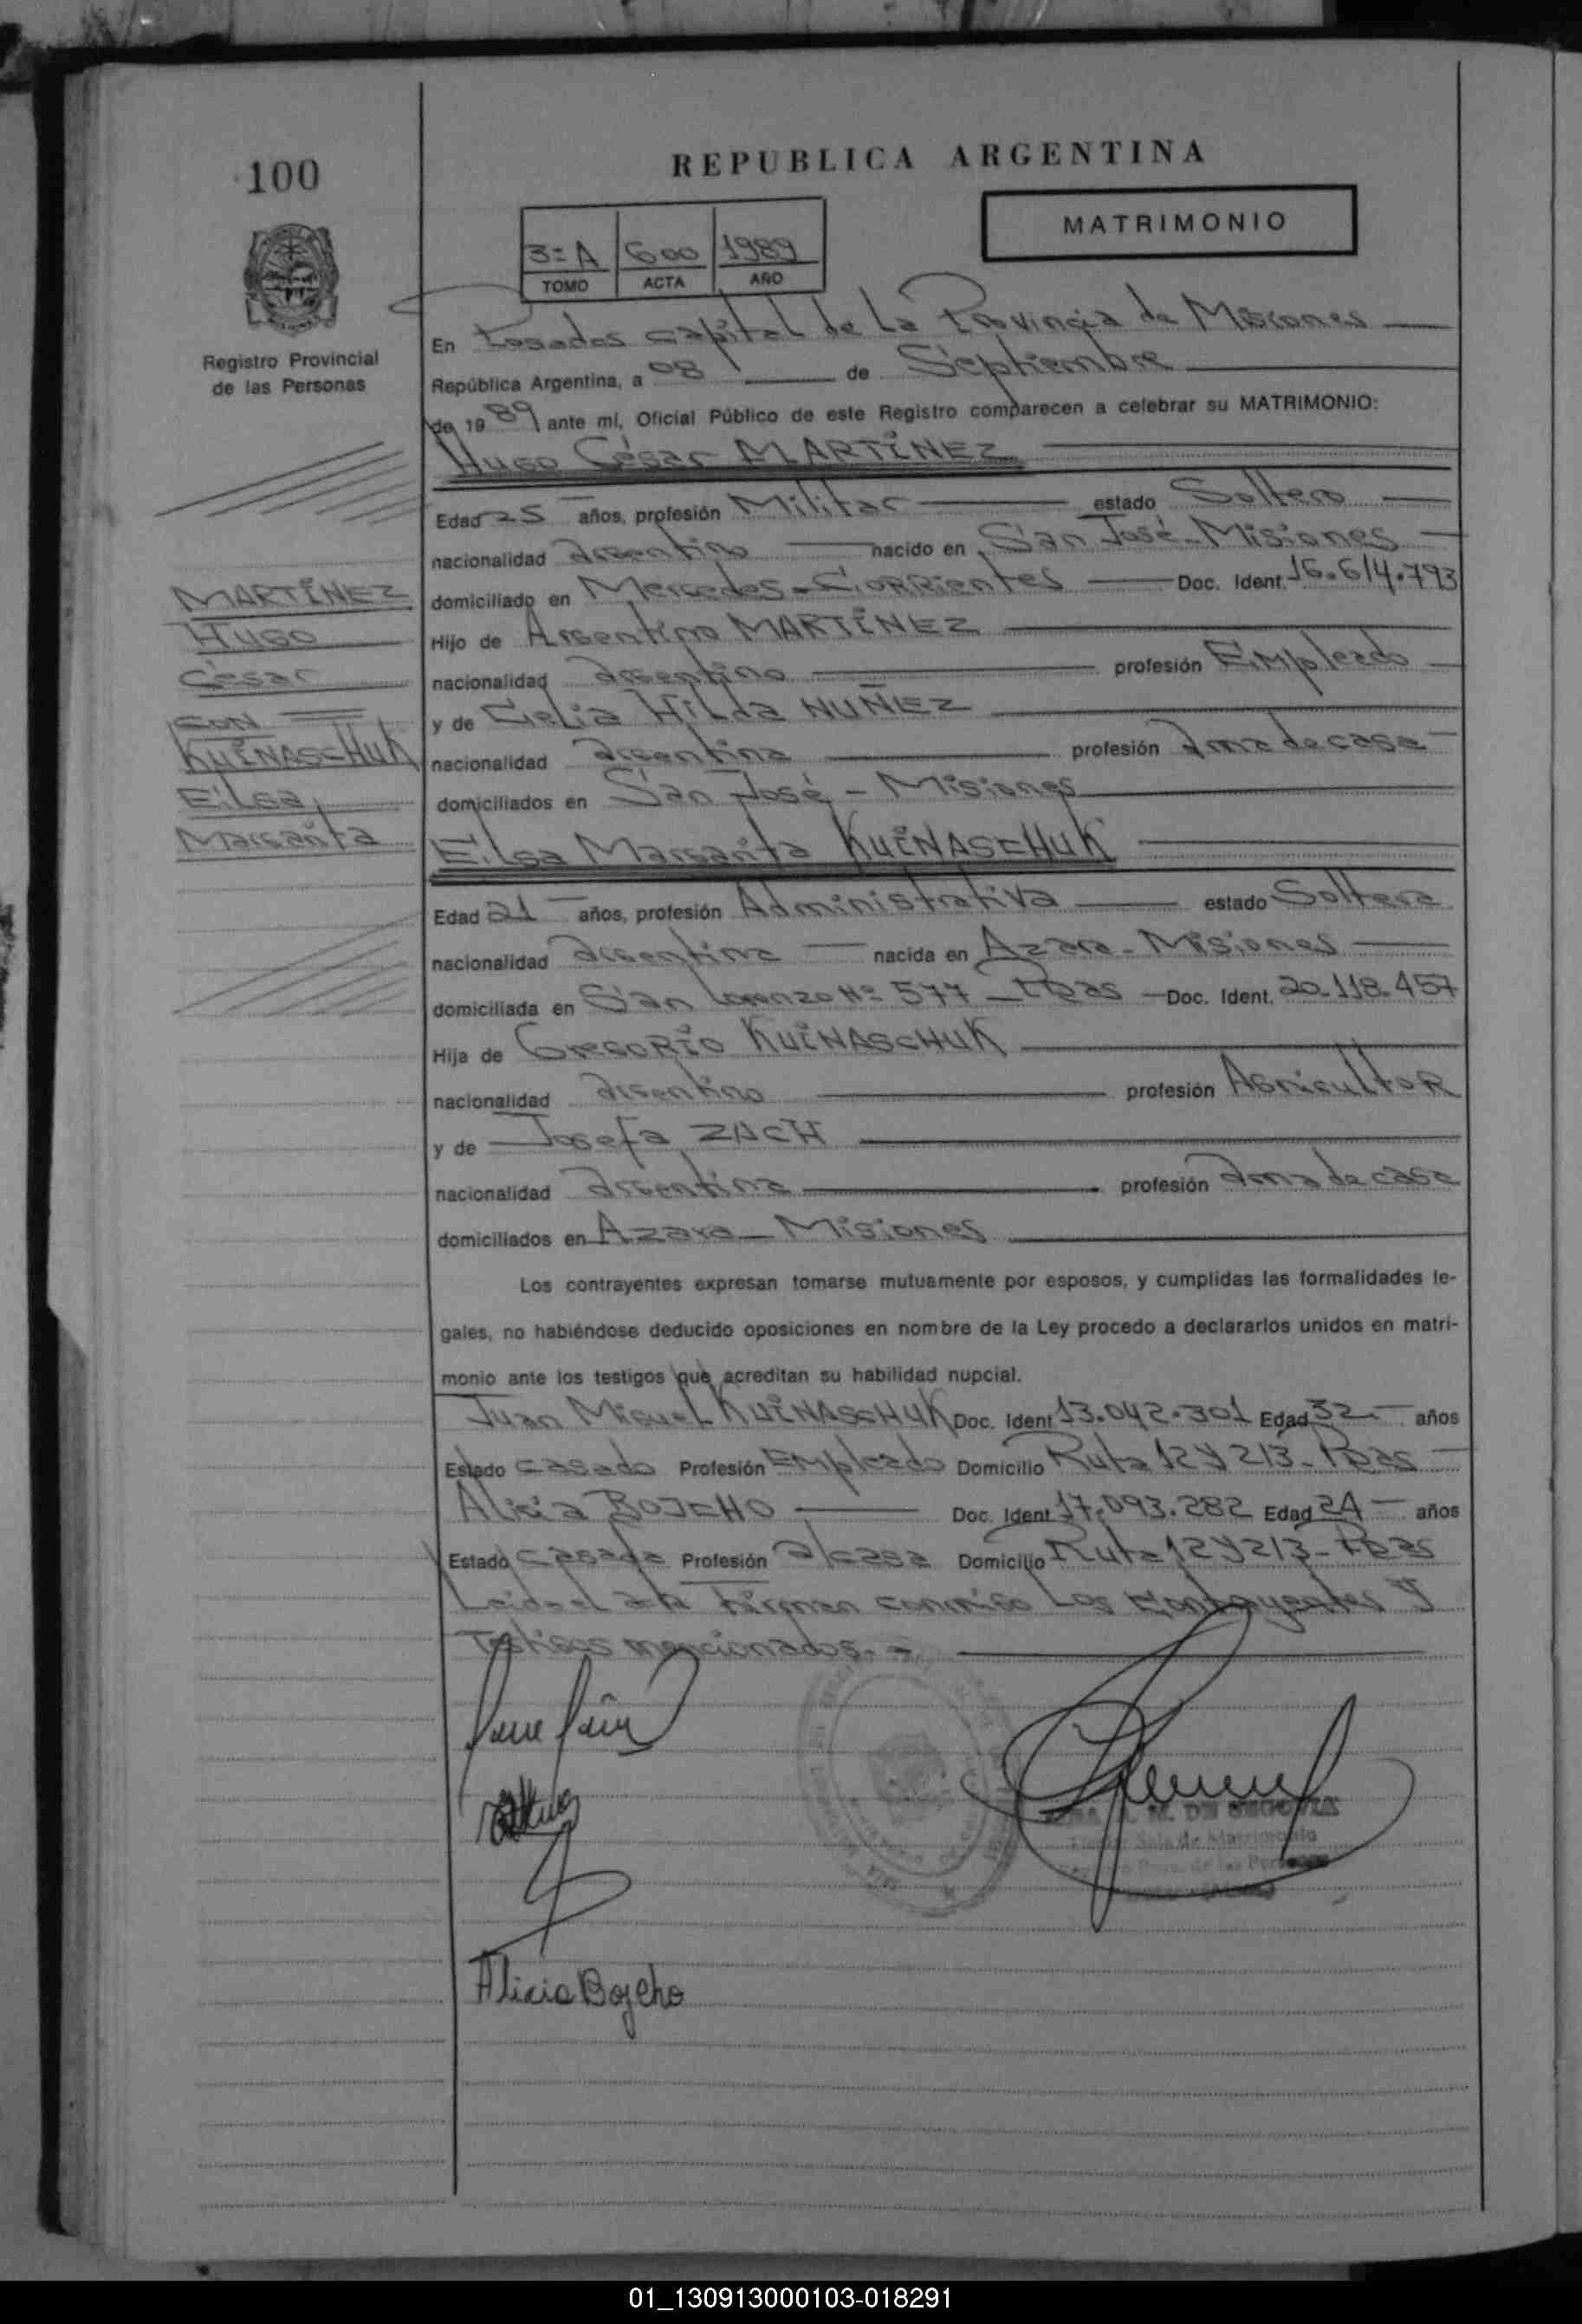 100
REPUBLICA ARGENTINA
MATRIMONIO
3=A 600 1989
TOMO ACTA AÑO
Registro Provincial
de las Personas
En Posadas capital de La Provincia de Misiones
República Argentina, a 08 de Septiembre
de 1989 ante mí, Oficial Público de este Registro comparecen a celebrar su MATRIMONIO:
Hugo César MARTÍNEZ
Edad 25 años, profesión Militar estado Soltero
nacionalidad argentino nacido en San José-Misiones
MARTÍNEZ
domiciliado en Mercedes-Corrientes Doc. Ident. 16.614.793
Hugo
Hijo de Argentino MARTÍNEZ
César
nacionalidad argentino profesión Empleado
CON
y de Celia Hilda NUÑEZ
KUINASCHUK
nacionalidad argentina profesión ama de casa
Elsa
domiciliados en San José - Misiones
Margarita
Elsa Margarita KUINASCHUK
Edad 21 años, profesión Administrativa estado Soltera
nacionalidad argentina nacida en Azara-Misiones
domiciliada en San Lorenzo Nº 577 - Pdas Doc. Ident. 20.118.457
Hija de Gregorio KUINASCHUK
nacionalidad argentino profesión Agricultor
y de Josefa ZACH
nacionalidad argentina profesión ama de casa
domiciliados en Azara - Misiones
Los contrayentes expresan tomarse mutuamente por esposos, y cumplidas las formalidades le-
gales, no habiéndose deducido oposiciones en nombre de la Ley procedo a declararlos unidos en matri-
monio ante los testigos que acreditan su habilidad nupcial.
Juan Miguel KUINASCHUK Doc. Ident 13.042.301 Edad 32 años
Estado casado Profesión Empleado Domicilio Ruta 12 y 213 - Pdas
Alicia BOJEHO Doc. Ident 17.093.282 Edad 24 años
Estado casada Profesión a/casa Domicilio Ruta 12 y 213 - Pdas
Leida el acta firman conmigo Los contrayentes y
Testigos mencionados.-
M. DE SEGOVIA
Sala de Matrimonio
Prov. de las Personas
Alicia Bojeho
01_130913000103-018291